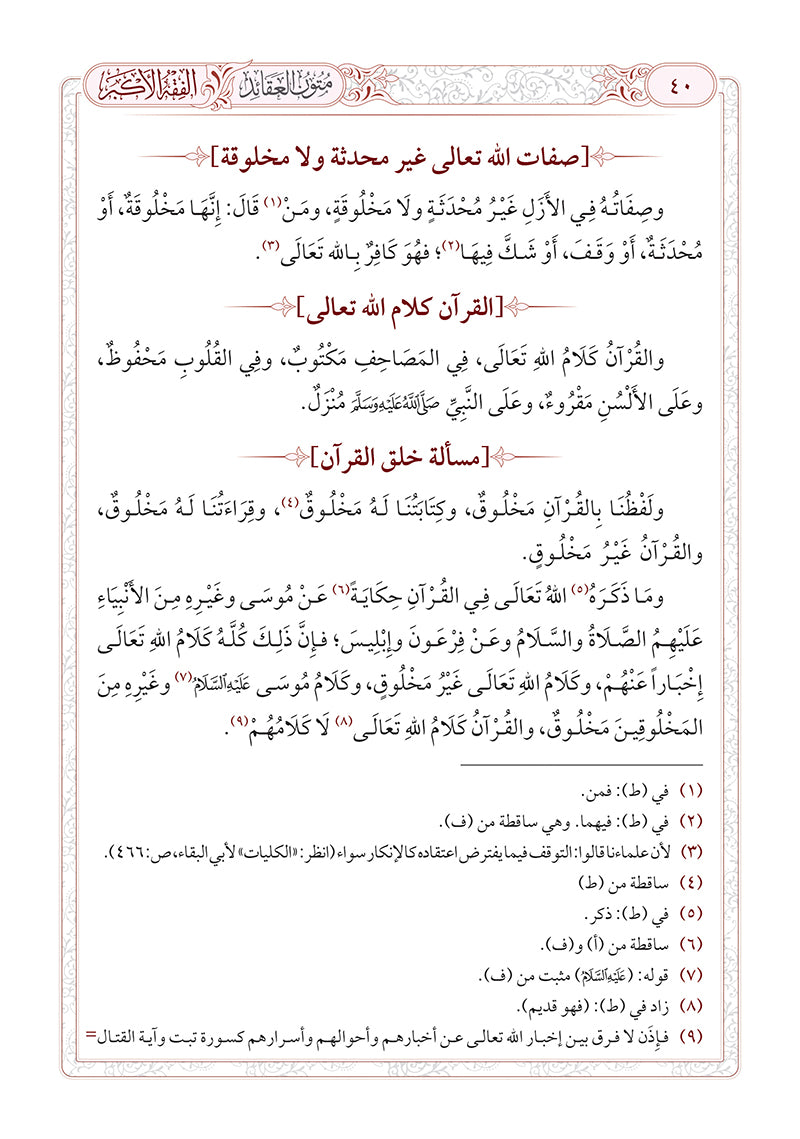 ٤٠ متون العقائد الفقه الأكبر
[صفات الله تعالى غير محدثة ولا مخلوقة]
وصِفَاتُهُ فِي الأَزَلِ غَيْرُ مُحْدَثَةٍ ولَا مَخْلُوقَةٍ، ومَنْ(١) قَالَ: إِنَّهَا مَخْلُوقَةٌ، أَوْ
مُحْدَثَةٌ، أَوْ وَقَفَ، أَوْ شَكَّ فِيهَا(٢)؛ فهُوَ كَافِرٌ بِالله تَعَالَى(٣).
[القرآن كلام الله تعالى]
والقُرْآنُ كَلَامُ اللهِ تَعَالَى، فِي المَصَاحِفِ مَكْتُوبٌ، وفِي القُلُوبِ مَحْفُوظٌ،
وعَلَى الأَلْسُنِ مَقْرُوءٌ، وعَلَى النَّبِيِّ صَلَّى اللَّهُ عَلَيْهِ وَسَلَّمَ مُنْزَلٌ.
[مسألة خلق القرآن]
ولَفْظُنَا بِالقُرْآنِ مَخْلُوقٌ، وكِتَابَتُنَا لَهُ مَخْلُوقٌ(٤)، وقِرَاءَتُنَا لَهُ مَخْلُوقٌ،
والقُرْآنُ غَيْرُ مَخْلُوقٍ.
ومَا ذَكَرَهُ(٥) اللهُ تَعَالَى فِي القُرْآنِ حِكَايَةً(٦) عَنْ مُوسَى وغَيْرِهِ مِنَ الأَنْبِيَاءِ
عَلَيْهِمُ الصَّلَاةُ والسَّلَامُ وعَنْ فِرْعَونَ وإِبْلِيسَ؛ فإِنَّ ذَلِكَ كُلَّهُ كَلَامُ اللهِ تَعَالَى
إِخْبَاراً عَنْهُمْ، وكَلَامُ اللهِ تَعَالَى غَيْرُ مَخْلُوقٍ، وكَلَامُ مُوسَى عَلَيْهِ السَّلَامُ(٧) وغَيْرِهِ مِنَ
المَخْلُوقِينَ مَخْلُوقٌ، والقُرْآنُ كَلَامُ اللهِ تَعَالَى(٨) لَا كَلَامُهُمْ(٩).
(١) في (ط): فمن.
(٢) في (ط): فيهما. وهي ساقطة من (ف).
(٣) لأن علماءنا قالوا: التوقف فيما يفترض اعتقاده كالإنكار سواء (انظر: «الكليات» لأبي البقاء، ص: ٤٦٦).
(٤) ساقطة من (ط)
(٥) في (ط): ذكر.
(٦) ساقطة من (أ) و(ف).
(٧) قوله: (عَلَيْهِ السَّلَامُ) مثبت من (ف).
(٨) زاد في (ط): (فهو قديم).
(٩) فإِذَن لا فرق بين إخبار الله تعالى عن أخبارهم وأحوالهم وأسرارهم كسورة تبت وآية القتال=